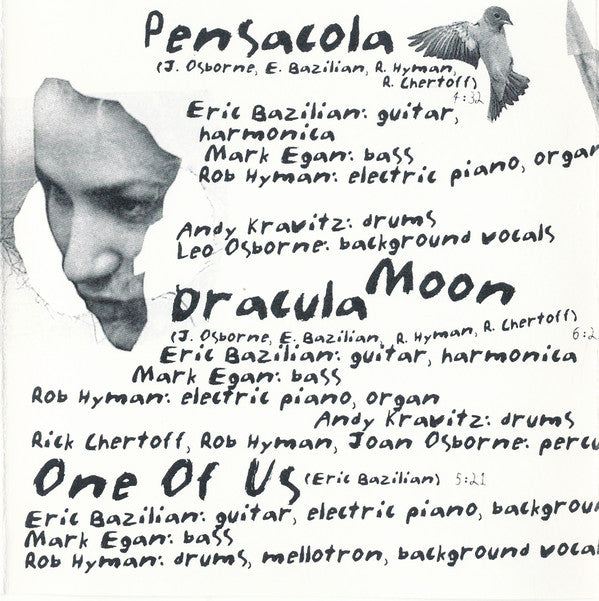 Pensacola
(J. Osborne, E. Bazilian, R. Hyman,
R. Chertoff)
4:32
Eric Bazilian: guitar,
harmonica
Mark Egan: bass
Rob Hyman: electric piano, organ
Andy Kravitz: drums
Leo Osborne: background vocals
Dracula Moon
(J. Osborne, E. Bazilian, R. Hyman, R. Chertoff)
6:2
Eric Bazilian: guitar, harmonica
Mark Egan: bass
Rob Hyman: electric piano, organ
Andy Kravitz: drums
Rick Chertoff, Rob Hyman, Joan Osborne: percu
One Of Us (Eric Bazilian) 5:21
Eric Bazilian: guitar, electric piano, backgrou
Mark Egan: bass
Rob Hyman: drums, mellotron, background vocal